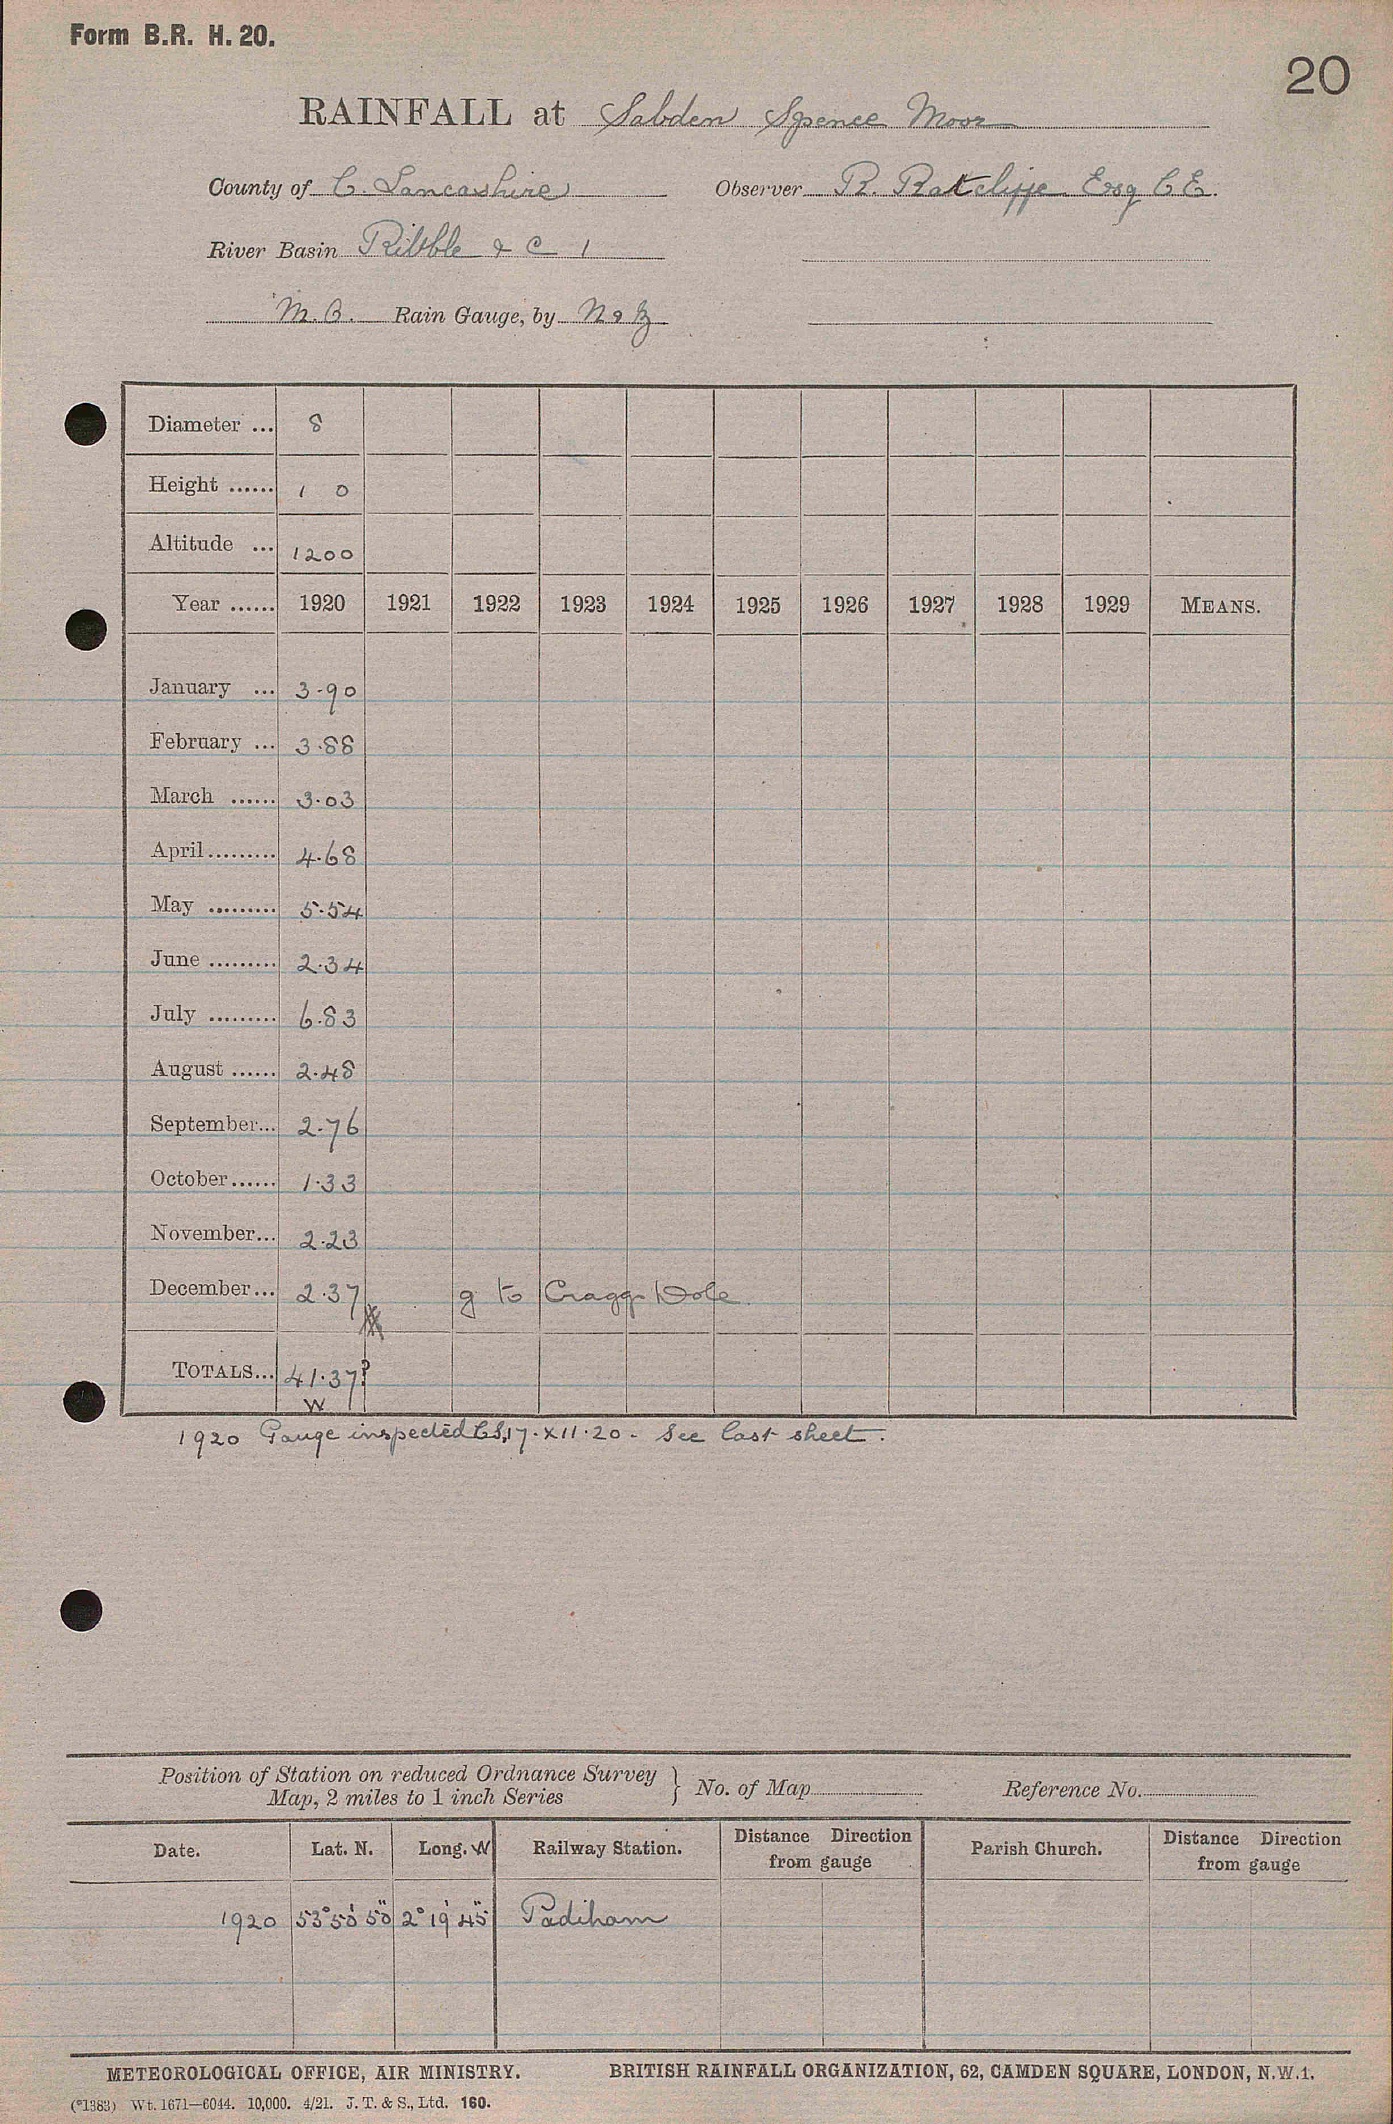 Form B.R. H. 20.
20
RAINFALL at Sabden Spence Moor
County of C. Lancashire Observer R. Ratcliffe Esq C E.
River Basin Ribble & C 1
M.O. Rain Gauge, by N & Z
Diameter ... 8
Height ...... 1 0
Altitude ... 1200
Year ...... 1920 1921 1922 1923 1924 1925 1926 1927 1928 1929 MEANS.
January ... 3.90
February ... 3.88
March ...... 3.03
April ......... 4.68
May ......... 5.54
June ......... 2.34
July ......... 6.83
August ...... 2.48
September... 2.76
October ...... 1.33
November... 2.23
December... 2.37 g to Cragg Hole
TOTALS... 41.37?
W
1920 Gauge inspected C.S. 17.XII.20. See last sheet.
Position of Station on reduced Ordnance Survey
Map, 2 miles to 1 inch Series } No. of Map Reference No.
Date. Lat. N. Long. W Railway Station. Distance Direction from gauge Parish Church. Distance Direction from gauge
1920 53° 50' 50" 2° 19' 45" Padiham
METEOROLOGICAL OFFICE, AIR MINISTRY. BRITISH RAINFALL ORGANIZATION, 62, CAMDEN SQUARE, LONDON, N.W.1.
(*1383) Wt. 1671—6044. 10,000. 4/21. J. T. & S., Ltd. 160.